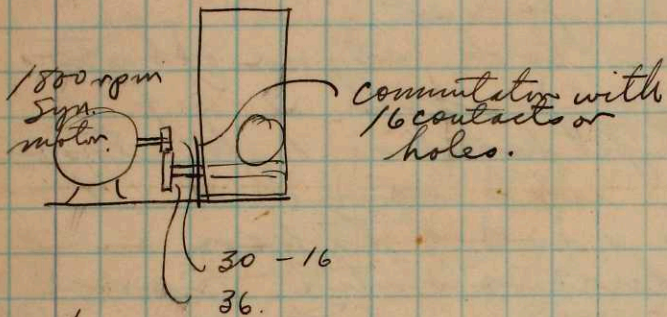 1800 rpm
Syn.
motor.
commutator with
16 contacts or
holes.
30 - 16
36.